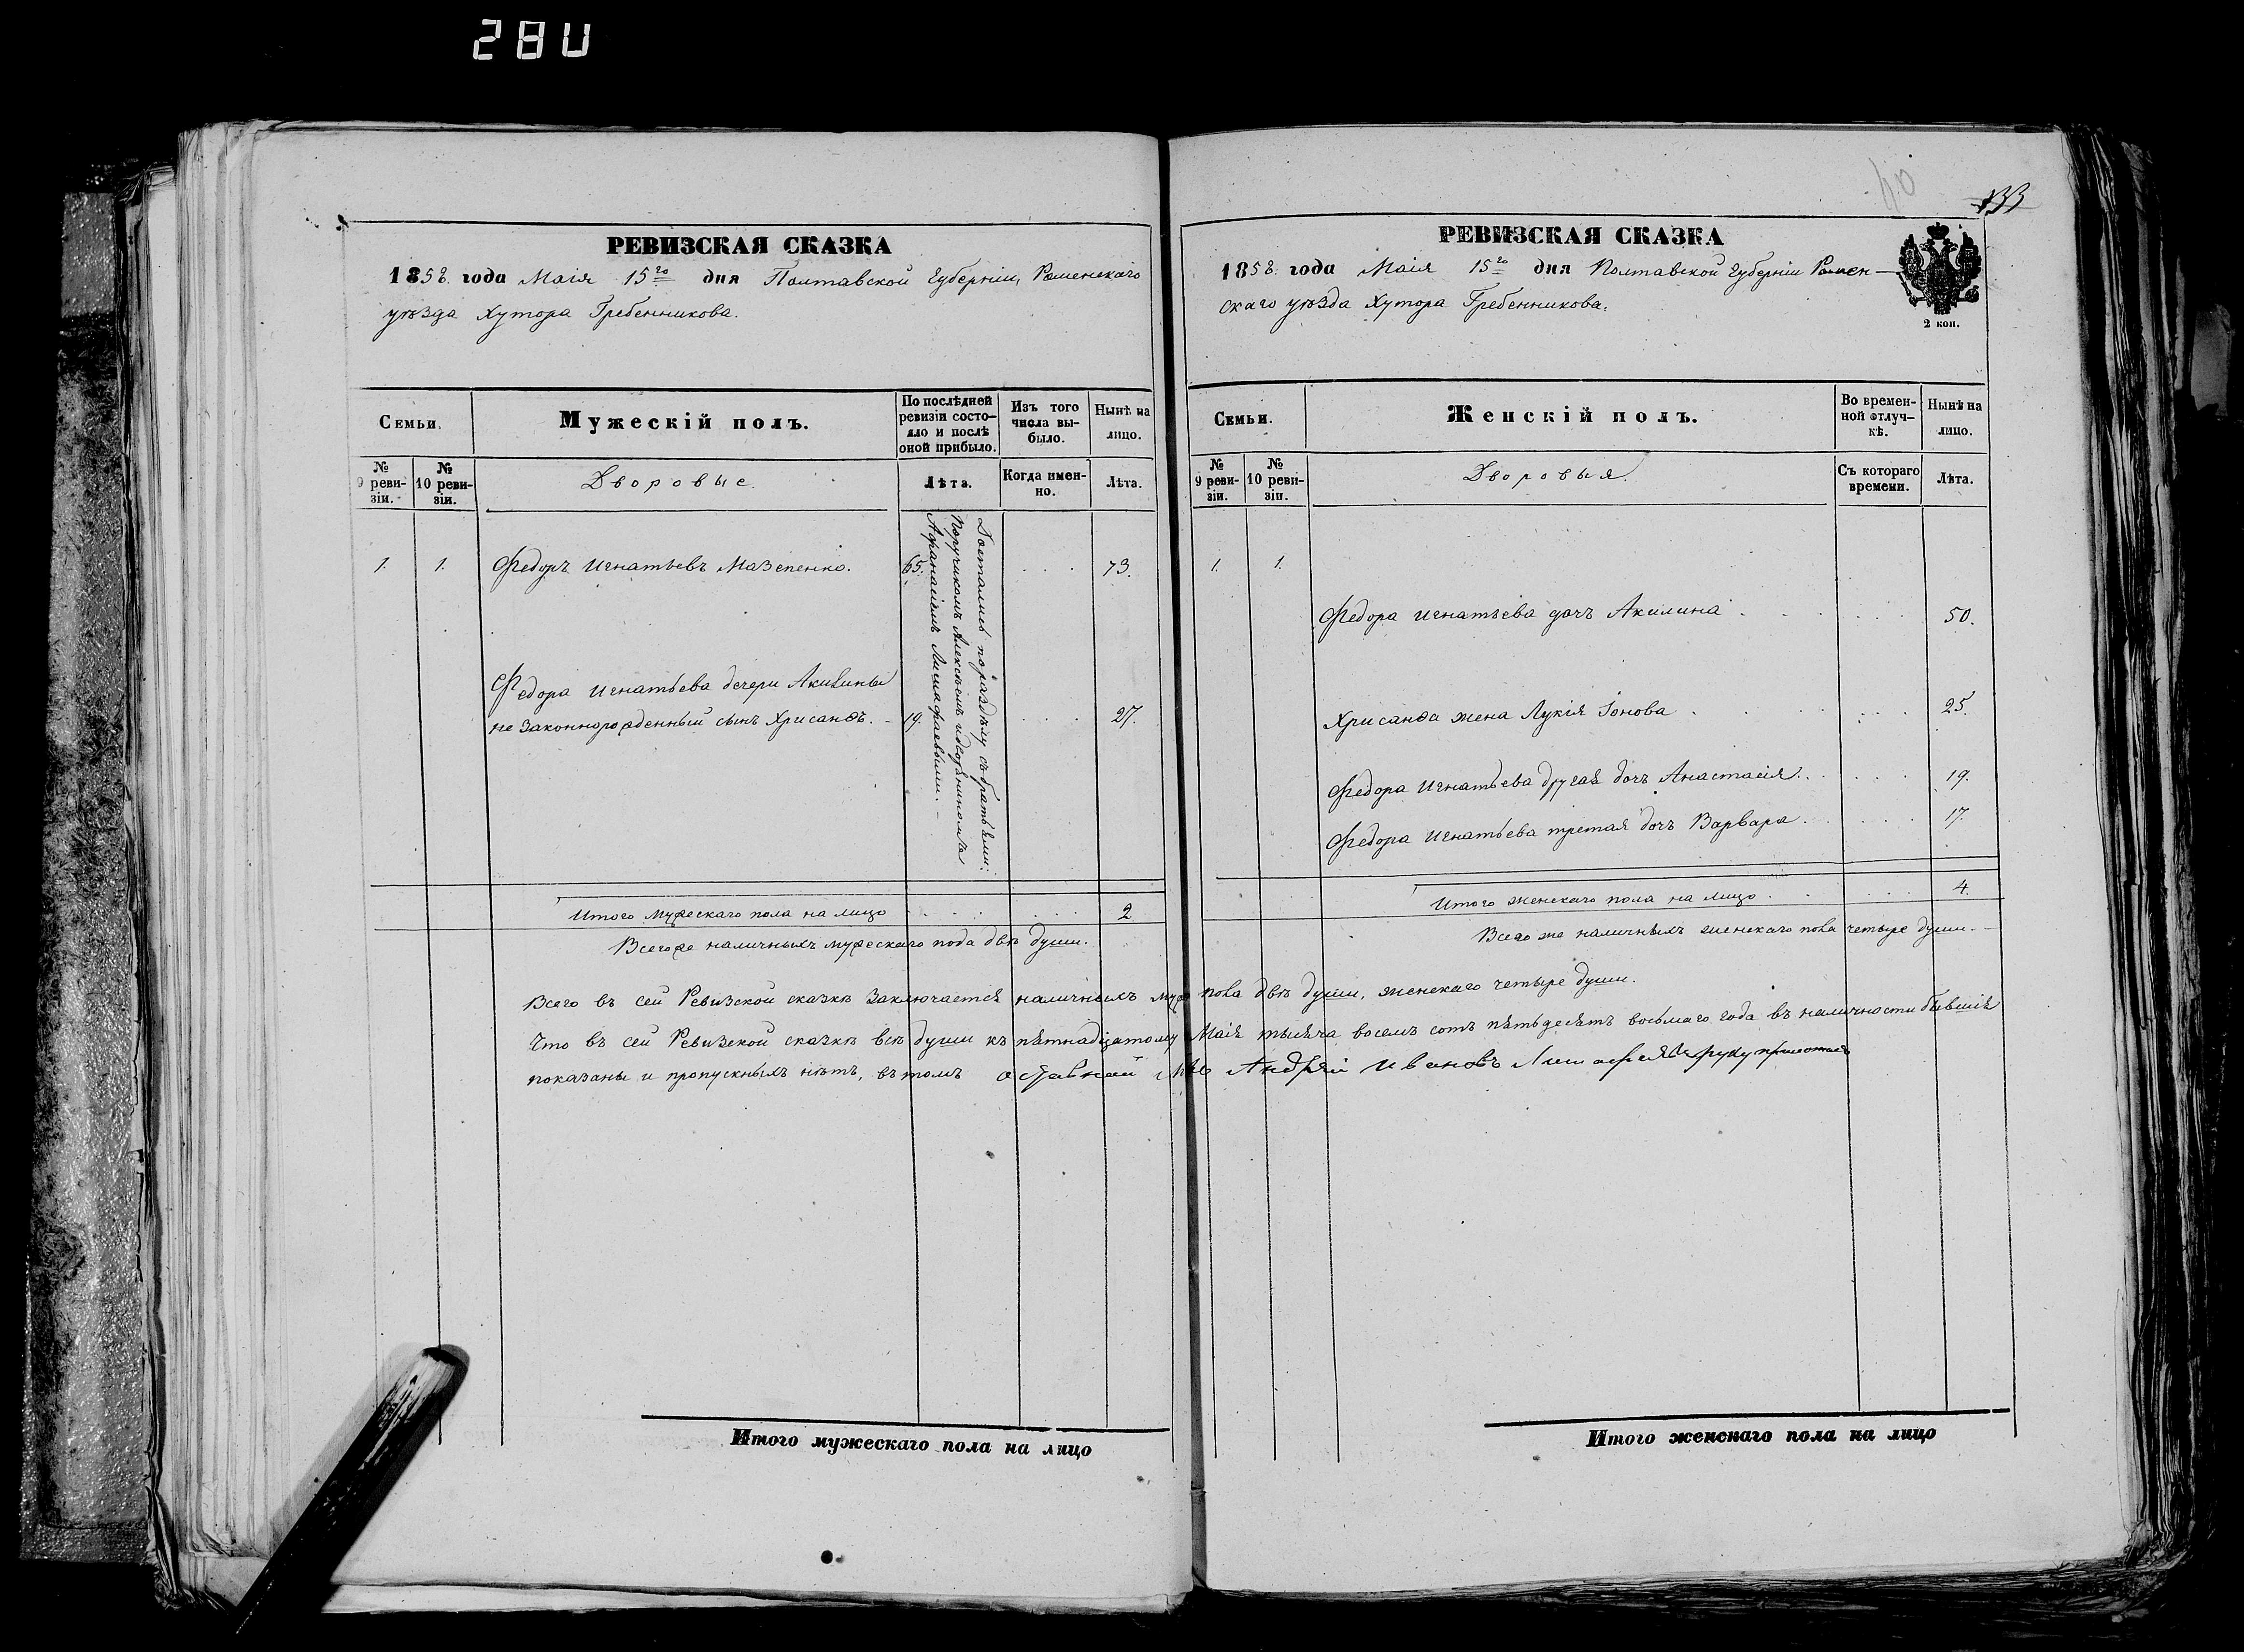 28U
РЕВИЗСКАЯ СКАЗКА
1858. года Маія 15го дня Полтавской Губерніи, Роменскаго
уѣзда Хутора Гребенникова.
Семьи.
Мужескій полъ.
По послѣдней
ревизіи состо-
яло и послѣ
оной прибыло.
Изъ того
числа вы-
было.
Нынѣ на
лицо.
№
9 реви-
зіи.
№
10 реви-
зіи.
Дворовые.
Лѣта.
Когда имен-
но.
Лѣта.
1. 1. Федоръ Игнатьевъ Мазепенко. 65. . . . 73.
Федора Игнатьева дочери Акилины
не законнорожденный сынъ Хрисанѳъ. - 19. . . . 27.
Достались по раздѣлу съ братьями:
Поручикомъ Алексѣемъ и дворяниномъ
Афанасіемъ
Итого мужескаго пола на лицо . . . . . . 2
Всего же наличныхъ мужескаго пола двѣ души.
Итого мужескаго пола на лицо
40
133
РЕВИЗСКАЯ СКАЗКА
1858. года Маія 15го дня Полтавской Губерніи Ромен-
скаго уѣзда Хутора Гребенникова.
2 коп.
Семьи.
Женскій полъ.
Во времен-
ной отлуч-
кѣ.
Нынѣ на
лицо.
№
9 реви-
зіи.
№
10 реви-
зіи.
Дворовыя.
Съ котораго
времени.
Лѣта.
1. 1.
Федора Игнатьева дочь Акилина . . . . . . 50.
Хрисанѳа жена Лукія Іонова . . . . . . 25.
Федора Игнатьева другая дочь Анастасія. . . . . 19.
Федора Игнатьева третая дочь Варвара . . . . . 17.
Итого женскаго пола на лицо . . . . . 4.
Всего же наличныхъ женскаго пола четыре души. -
Всего въ сей Ревизской сказкѣ заключается наличныхъ муж пола двѣ души, женскаго четыре души.
Что въ сей Ревизской сказкѣ всѣ души къ пятнадцатому Маія тысяча восемь сотъ пятьдесятъ восьмаго года въ наличности бывшія
показаны и пропускныхъ нѣтъ, въ томъ Андрей Ивановъ руку приложилъ
Итого женскаго пола на лицо